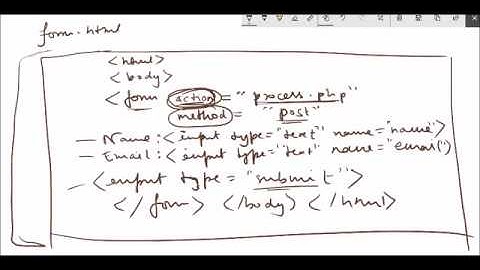 form.html
<html>
<body>
<form action = "process.php"
method = "post"
Name : <input type="text" name="name">
Email : <input type="text" name="email">
<input type = "submit">
</form> </body> </html>